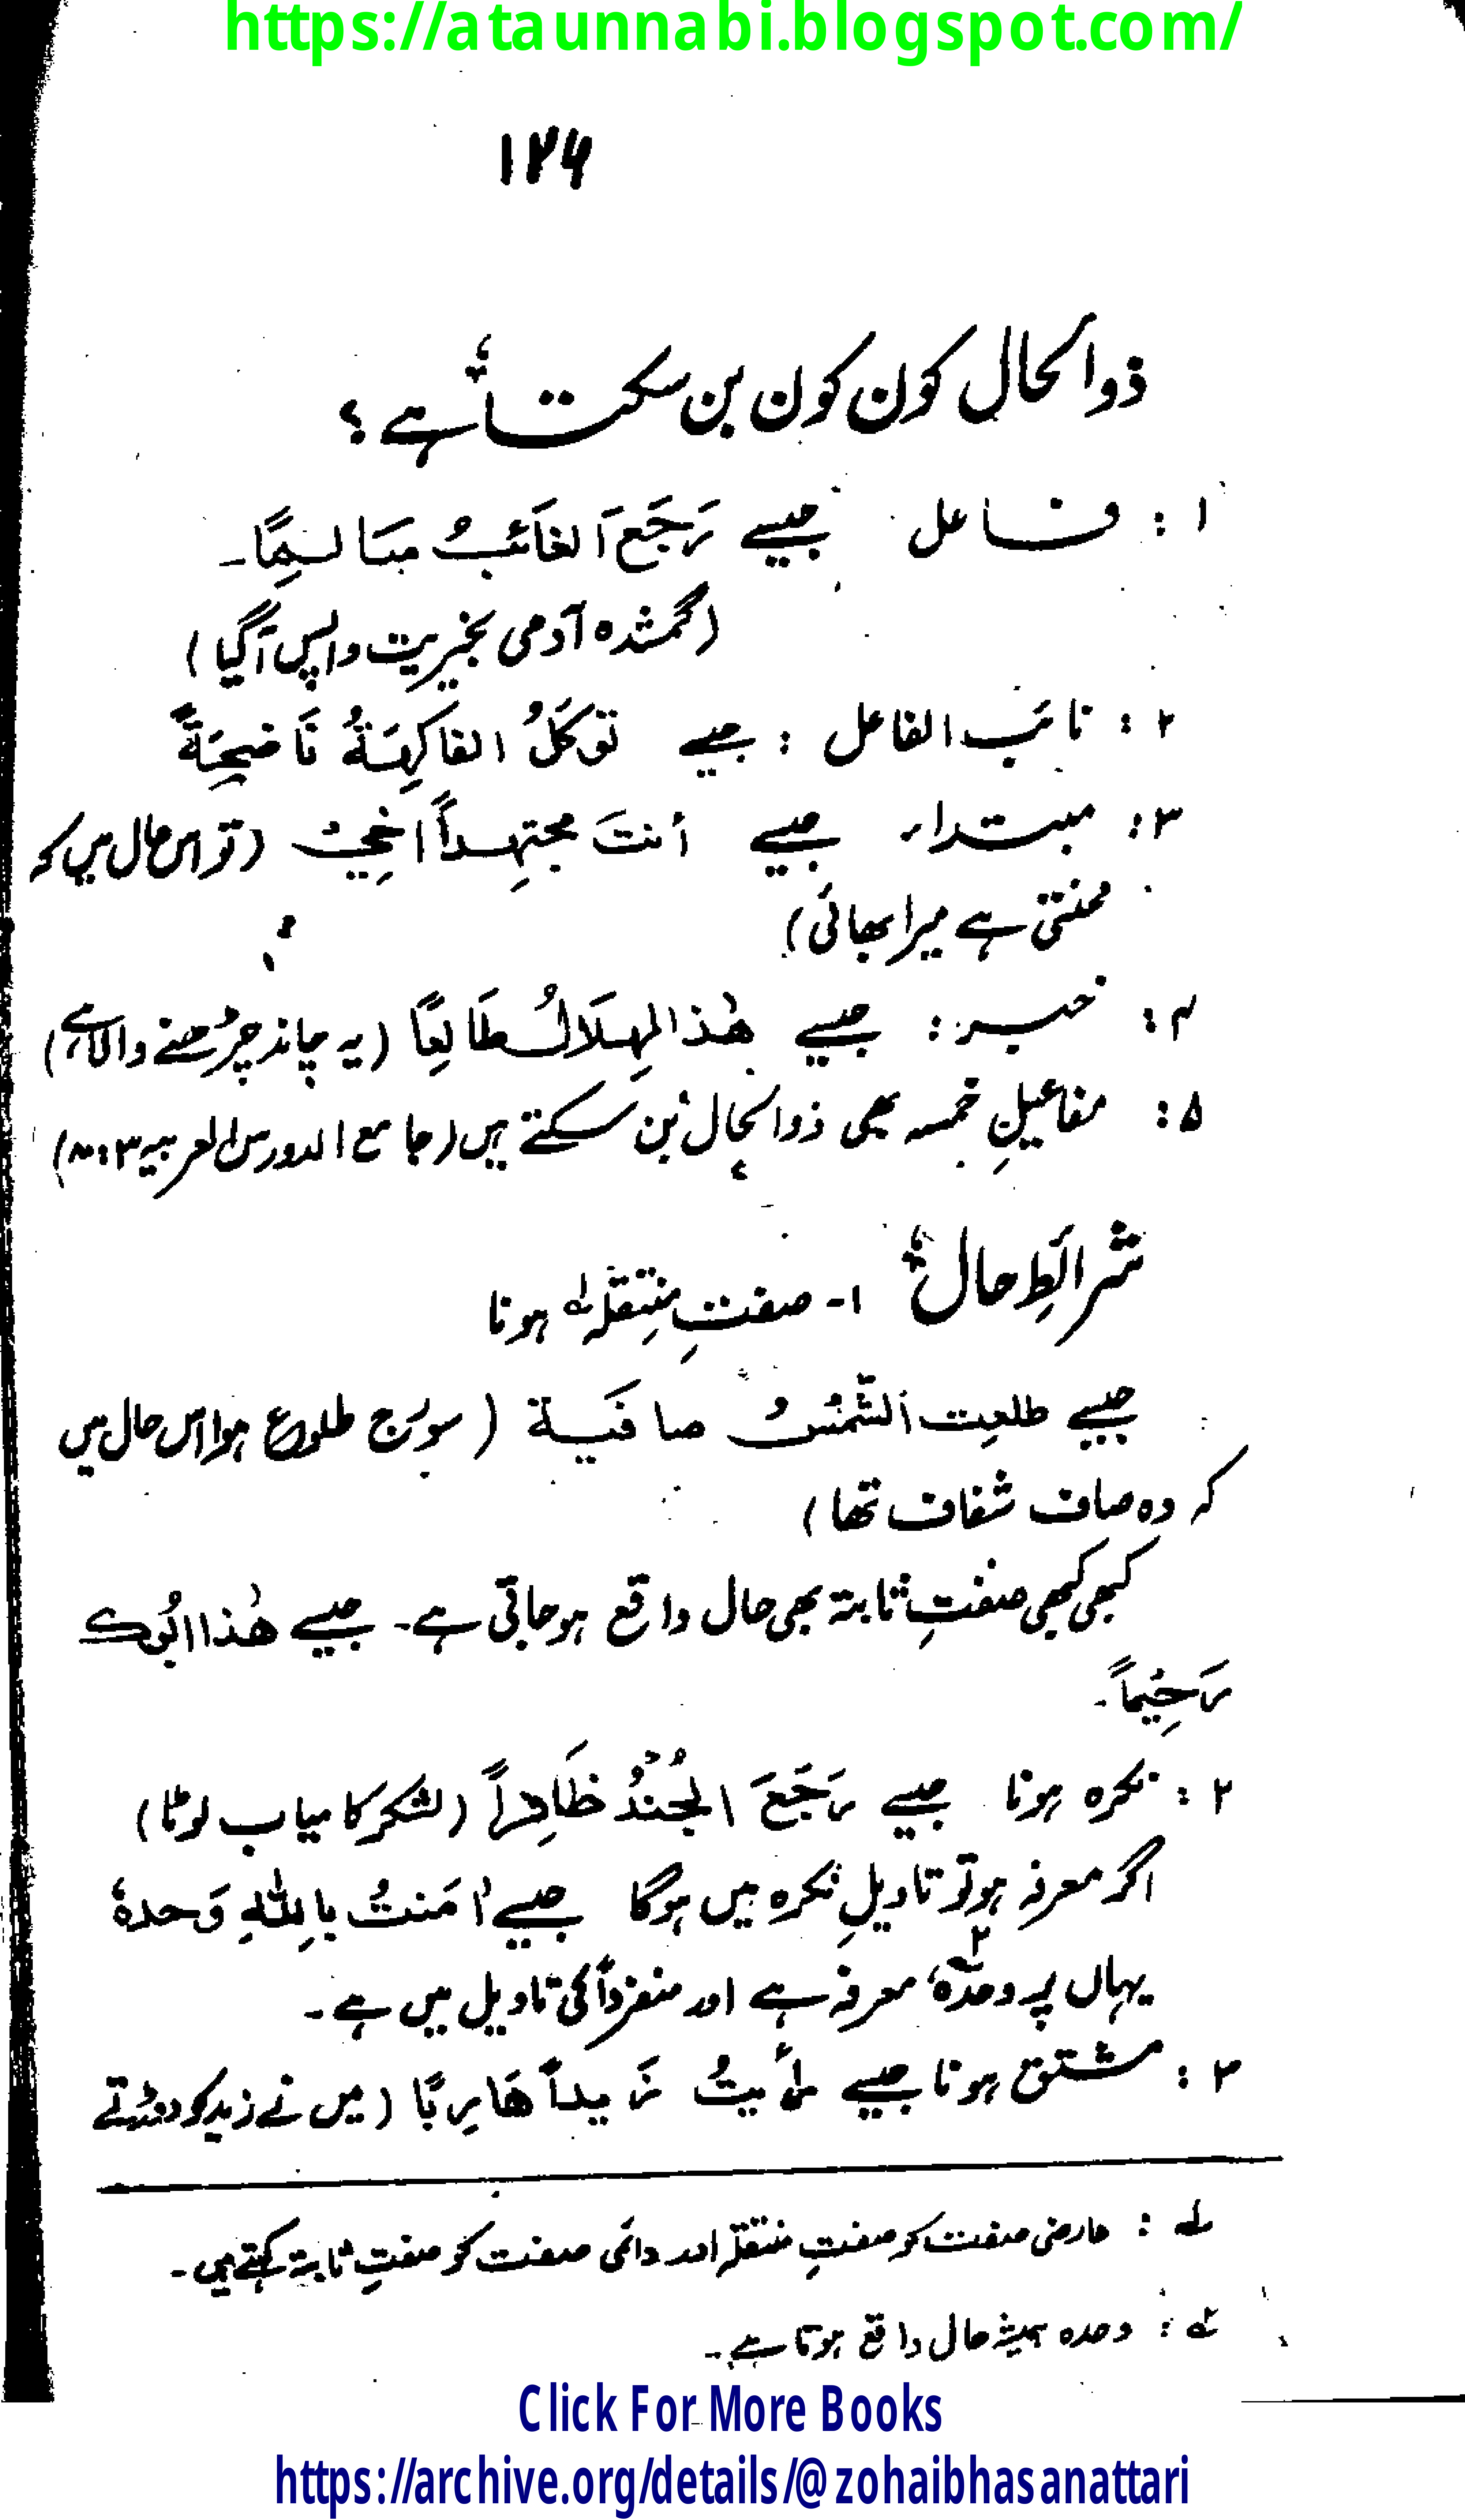 https://ataunnabi.blogspot.com/
۱۲۶
ذوالحال کون کون بن سکتا ہے ؟
۱ : فاعل جیسے رَجَعَ الغَائبُ سَالِمًا۔
(گمشدہ آدمی بخیریت واپس آگیا)
۲ : نائب الفاعل : جیسے تؤکَلُ الفاکِهَةُ نَاضِجَةً
۳ : مبتداء جیسے أنتَ مجتهِداً اخِيْ (تو اس حال میں کہ
محنتی ہے میرا بھائی)
۴ : خبر : جیسے هٰذا الهِلَالُ طَالِعًا (یہ چاند چڑھنے والا ہے)
۵ : مفاعیلِ خمسہ بھی ذوالحال بن سکتے ہیں (جامع الدروس العربیہ
شرائطِ حال ۱۔ صفتِ منتقلہ لہ ہونا
جیسے طلعِت الشّمسُ صافَية (سورج طلوع ہوا اس حال میں
کہ وہ صاف شفاف تھا)
کبھی کبھی صفتِ ثابتہ بھی حال واقع ہو جاتی ہے۔ جیسے هٰذا ابُوكَ
رَحِيْماً۔
۲ : نکرہ ہونا جیسے رَجَعَ الجُنْدُ ظَافِراً (لشکر کامیاب لوٹا)
اگر معرفہ ہو تو تاویلِ نکرہ میں ہوگا جیسے اٰمَنتُ بِاللّٰهِ وَحدهٗ
یہاں پر وحدہٗ ۲ معرفہ ہے اور منفرداً کی تاویل میں ہے۔
۳ : مشتق ہونا جیسے رأيتُ زَيداً هَارِبًا (میں نے زید کو دوڑتے
لہ : عارضی صفت کو صفتِ منتقلہ اور دائمی صفت کو صفتِ ثابتہ کہتے ہیں۔
۲ہ : وحدہ ہمیشہ حال واقع ہوتا ہے۔
Click For More Books
https://archive.org/details/@zohaibhasanattari